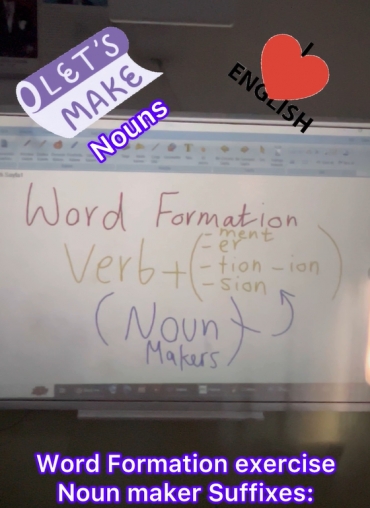 LET'S
MAKE
Nouns
I
ENGLISH
Word Formation
Verb + ( -ment
-er
-tion -ion
-sion )
(Noun
Makers)
Word Formation exercise
Noun maker Suffixes: